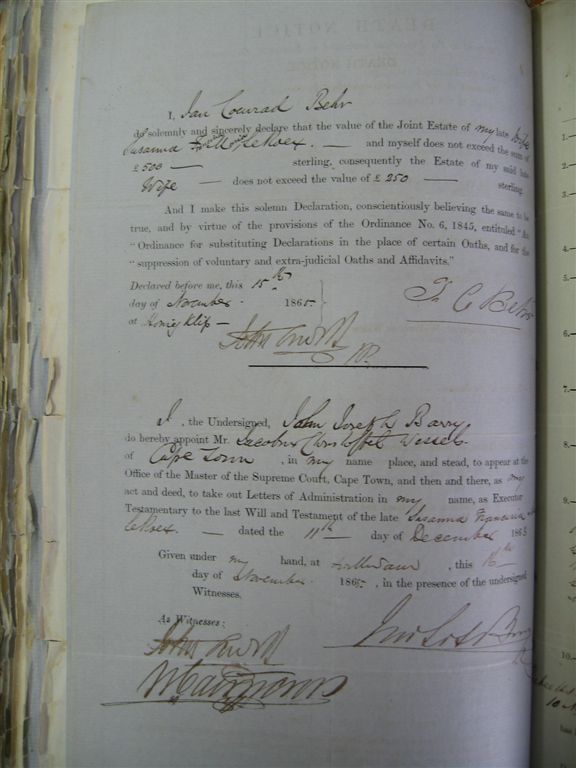 DEATH NOTICE
I, Jan Coenrad Behr
do solemnly and sincerely declare that the value of the Joint Estate of my late Wife
Susanna le Roex. — and myself does not exceed the sum of
£500 — sterling, consequently the Estate of my said late
Wife — does not exceed the value of £ 250 — sterling.
And I make this solemn Declaration, conscientiously believing the same to be
true, and by virtue of the provisions of the Ordinance No. 6, 1845, entituled "An
"Ordinance for substituting Declarations in the place of certain Oaths, and for the
"suppression of voluntary and extra-judicial Oaths and Affidavits."
Declared before me, this 15th
day of November. 1865
at Honigklip —
J C Behr
I, the Undersigned, John Joseph Barry
do hereby appoint Mr. Jacobus Christoffel Wessels
of Cape Town, in my name place, and stead, to appear at the
Office of the Master of the Supreme Court, Cape Town, and then and there, as my
act and deed, to take out Letters of Administration in my name, as Executor
Testamentary to the last Will and Testament of the late Susanna Francina le
Roex. — dated the 11th day of December 1863
Given under my hand, at , this 16th
day of November. 1865, in the presence of the undersigned
Witnesses.
As Witnesses:
1.—
2.—
3.—
4.—
5.—
6.—
7.—
8.—
9.—
10.—